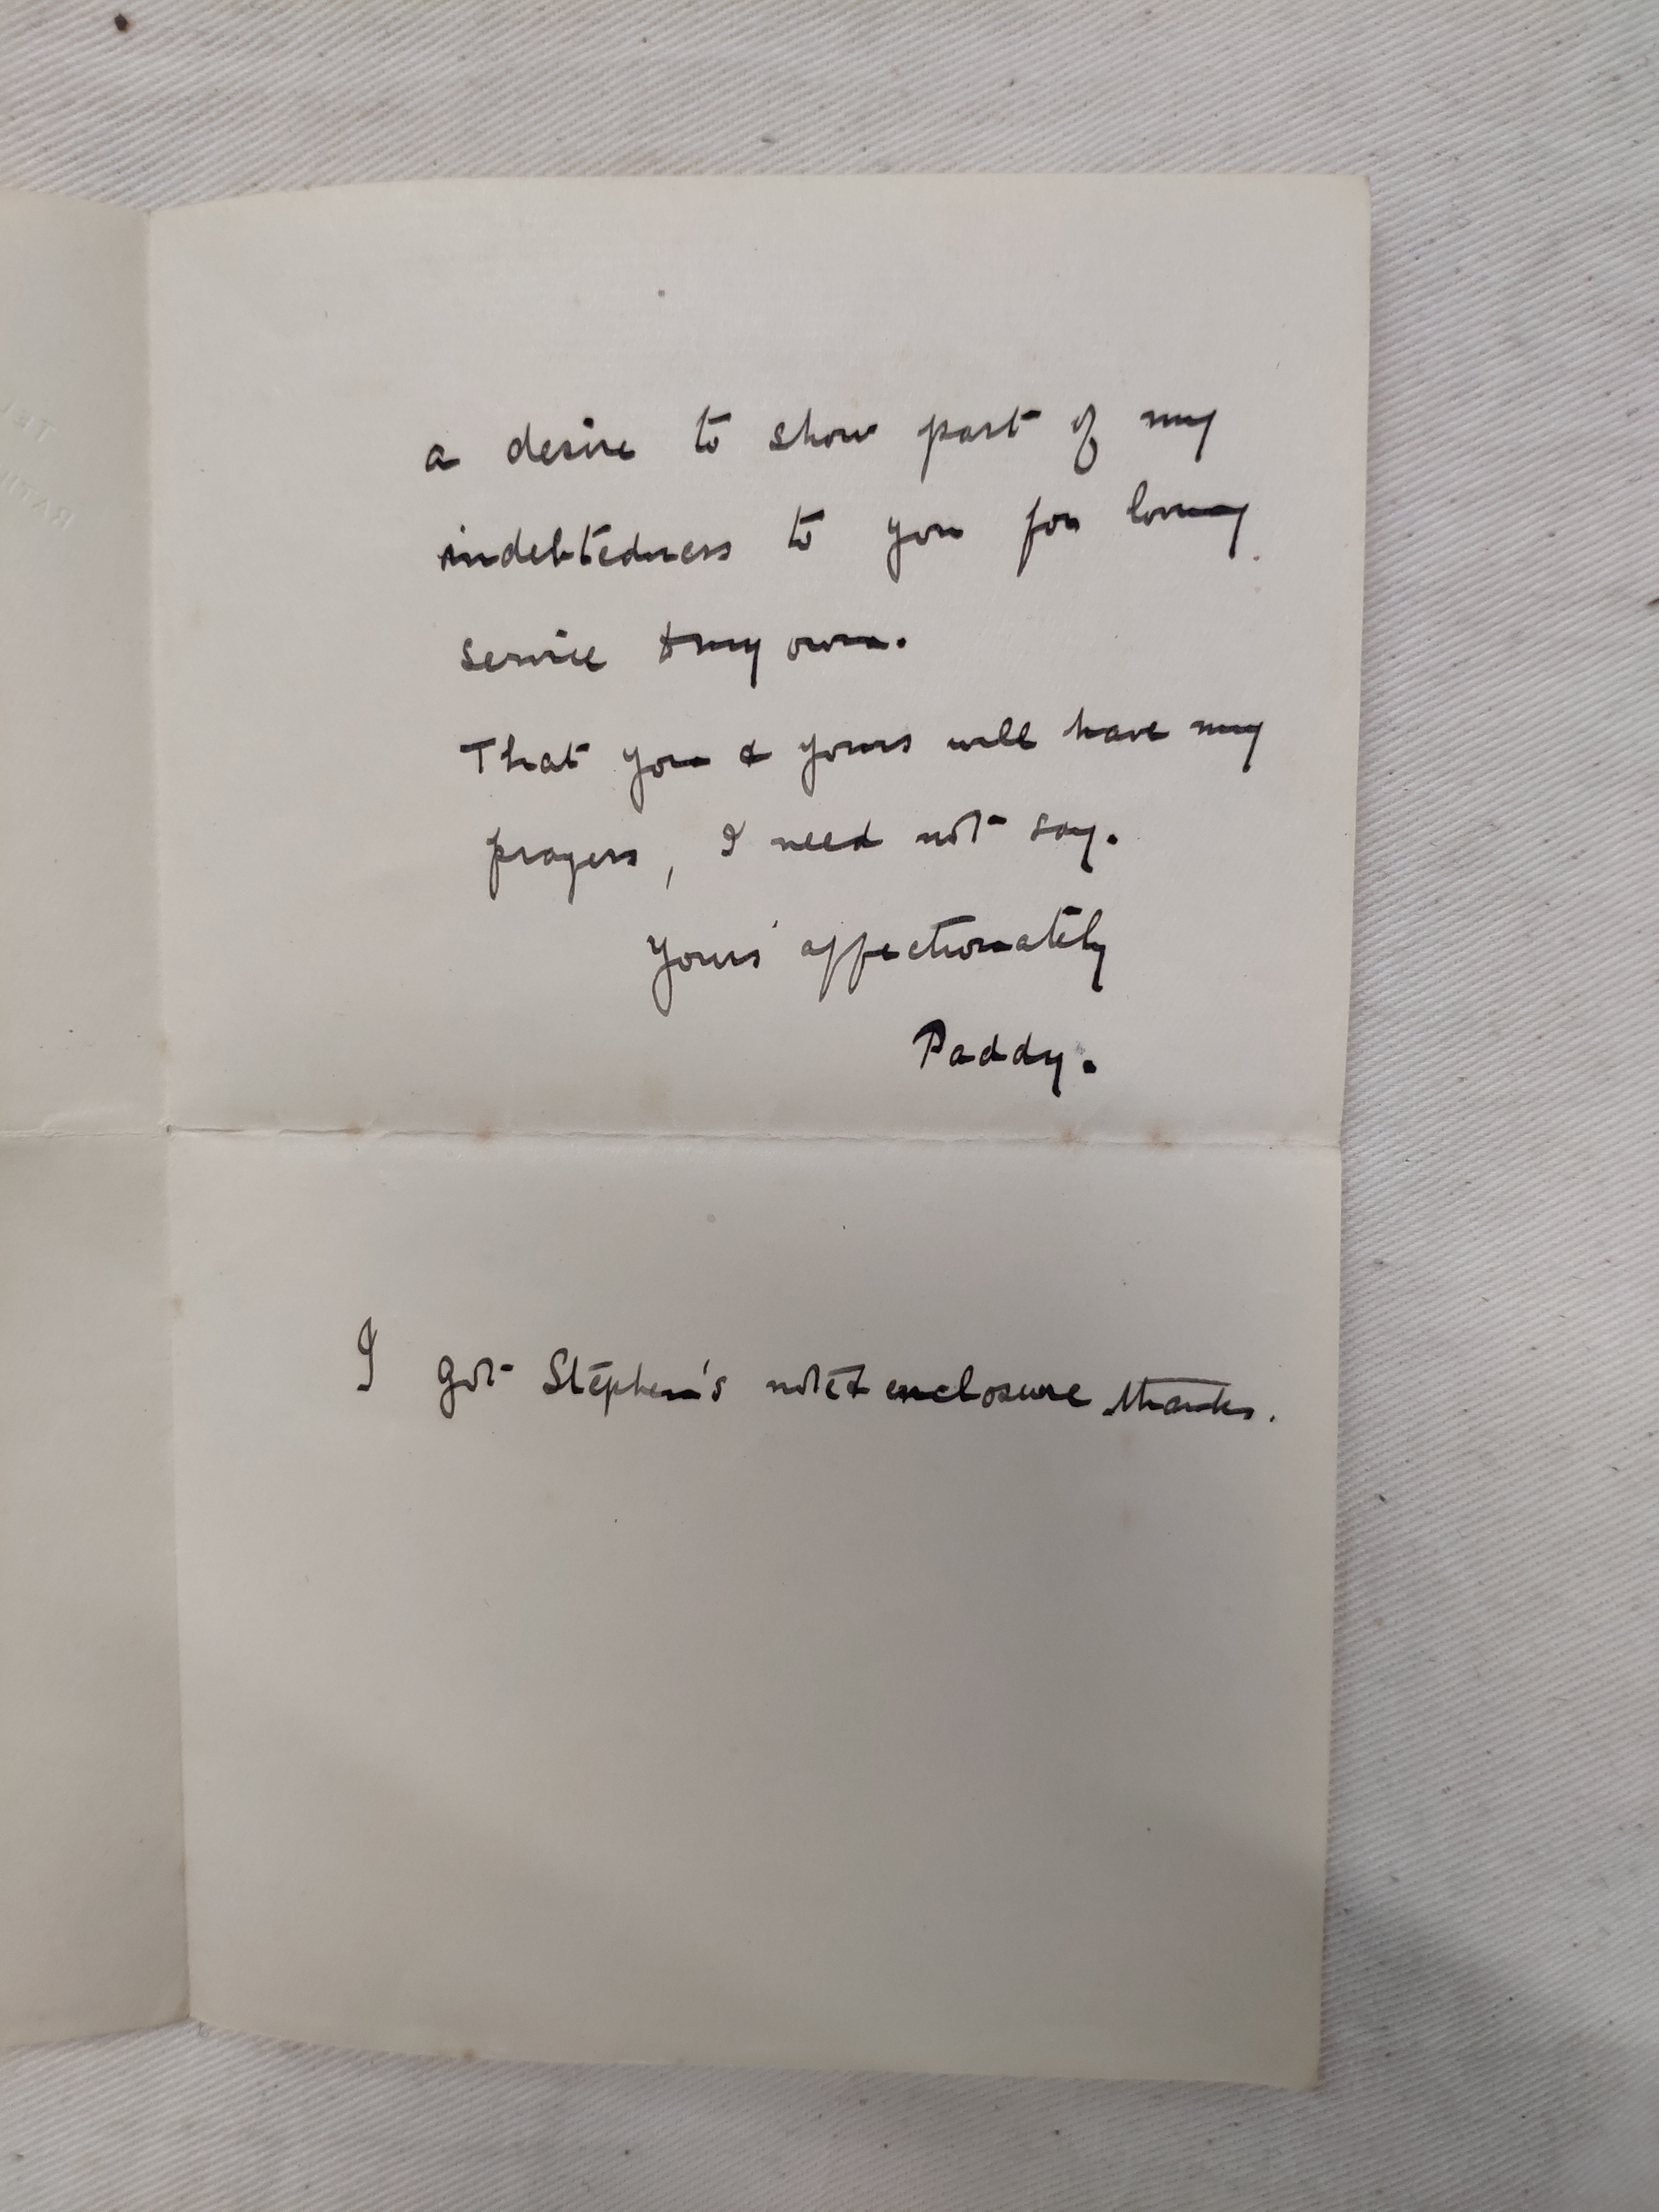 a desire to show part of my
indebtedness to you for loving
service to my own.
That you & yours will have my
prayers, I need not say.
Yours affectionately
Paddy.
I got Stephen's note & enclosure thanks.